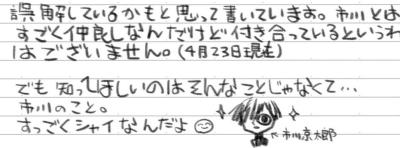 誤解しているかもと思って書いています。市川とは
すごく仲良しなんだけど付き合っているというわけ
はございません。(4月23日現在)
でも知ってほしいのはそんなことじゃなくて…
市川のこと。
すっごくシャイなんだよ
←市川京太郎